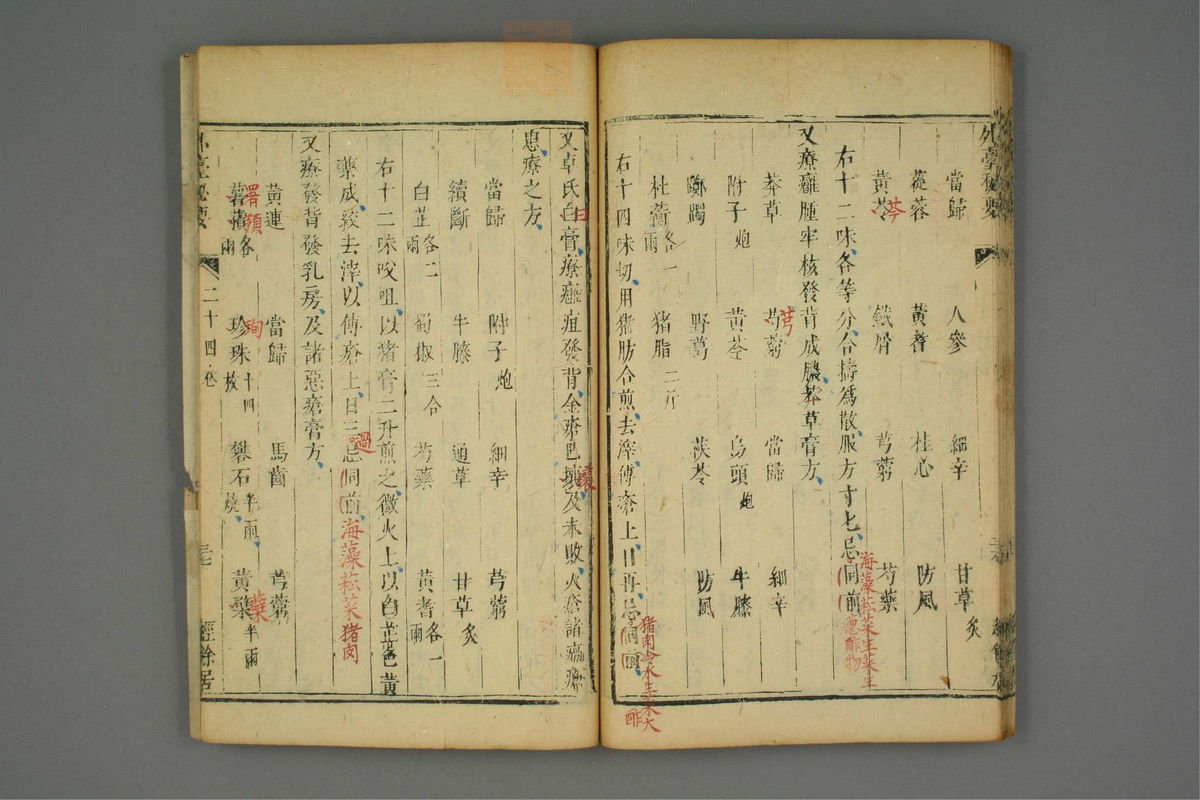 外臺秘要
當歸 人參 細辛 甘草炙
蓯蓉 黃耆 桂心 防風
黃芩 鐵屑 芎藭 芍藥
芩
右十二味各等分合擣爲散服方寸匕忌同前
海藻菘菜生菜生
葱酢物
又療癰腫牢核發背成膿莽草膏方
莽草 芎藭 當歸 細辛
芎
附子炮 黃芩 烏頭炮 牛膝
躑躅 野葛 茯苓 防風
杜蘅各一兩 猪脂二斤
右十四味切用猪肪合煎去滓傅瘡上日再忌同前
猪肉冷水生菜大
酢
又卓氏白膏療癰疽發背金瘡已壞及未敗火瘡諸癘瘲
患療之方
當歸 附子炮 細辛 芎藭
續斷 牛膝 通草 甘草炙
白芷各二兩 蜀椒三合 芍藥 黃耆各一兩
右十二味㕮咀以猪膏二升煎之微火上以白芷色黃
藥成絞去滓以傅瘡上日三忌同前
過
海藻菘菜猪肉
又療發背發乳房及諸惡瘡膏方
黃連 當歸 馬齒 芎藭
薯蕷各兩 珍珠十四枚 礬石半兩燒 黃蘗半兩
外臺秘要 二十四卷 三七 經餘居